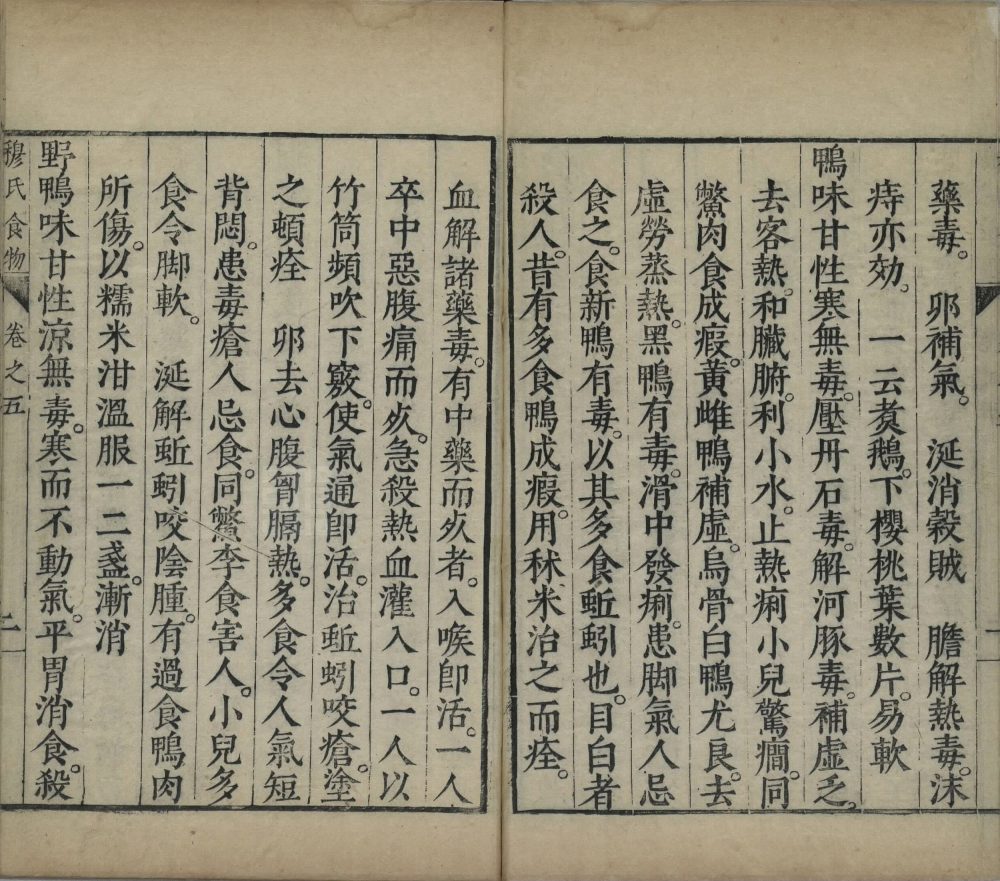 藥毒。　卵補氣。　涎消穀賊　膽解熱毒。沫
痔亦効。　一云煑鵝。下櫻桃葉數片。易軟
鴨味甘性寒無毒。壓丹石毒。解河豚毒。補虛乏。
去客熱。和臟腑。利小水。止熱痢小兒驚癎。同
鱉肉食成瘕。黃雌鴨補虛。烏骨白鴨尤良。去
虛勞蒸熱。黑鴨有毒。滑中發痢。患脚氣人忌
食之。食新鴨有毒。以其多食蚯蚓也。目白者
殺人。昔有多食鴨成瘕。用秫米治之而痊。
血解諸藥毒。有中藥而死者。入喉卽活。一人
卒中惡腹痛而死。急殺熱血灌入口。一人以
竹筒頻吹下竅。使氣通卽活。治蚯蚓咬瘡。塗
之頓痊　卵去心腹胷膈熱。多食令人氣短
背悶。患毒瘡人忌食。同鱉李食害人。小兒多
食令脚軟。　涎解蚯蚓咬陰腫。有過食鴨肉
所傷。以糯米泔溫服一二盞。漸消
野鴨味甘性凉無毒。寒而不動氣。平胃消食。殺
穆氏食物　卷之五　二